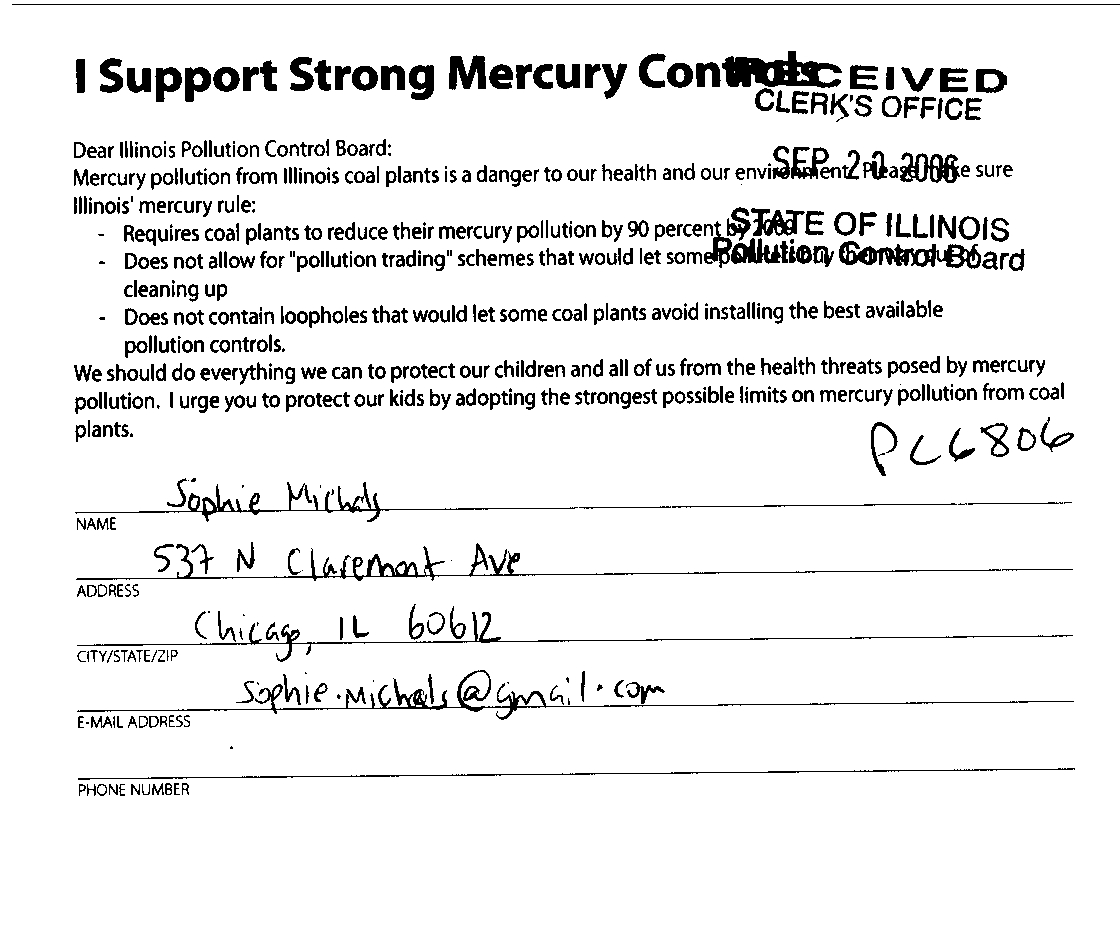 I Support Strong Mercury Controls
RECEIVED
CLERK'S OFFICE
SEP 2 2006
STATE OF ILLINOIS
Pollution Control Board
Dear Illinois Pollution Control Board:
Mercury pollution from Illinois coal plants is a danger to our health and our environment. Please make sure
Illinois' mercury rule:
- Requires coal plants to reduce their mercury pollution by 90 percent by 2009
- Does not allow for "pollution trading" schemes that would let some polluters buy their way out of
cleaning up
- Does not contain loopholes that would let some coal plants avoid installing the best available
pollution controls.
We should do everything we can to protect our children and all of us from the health threats posed by mercury
pollution. I urge you to protect our kids by adopting the strongest possible limits on mercury pollution from coal
plants.
PC6806
Sophie Michals
NAME
537 N Claremont Ave
ADDRESS
Chicago, IL 60612
CITY/STATE/ZIP
sophie.michals@gmail.com
E-MAIL ADDRESS
PHONE NUMBER